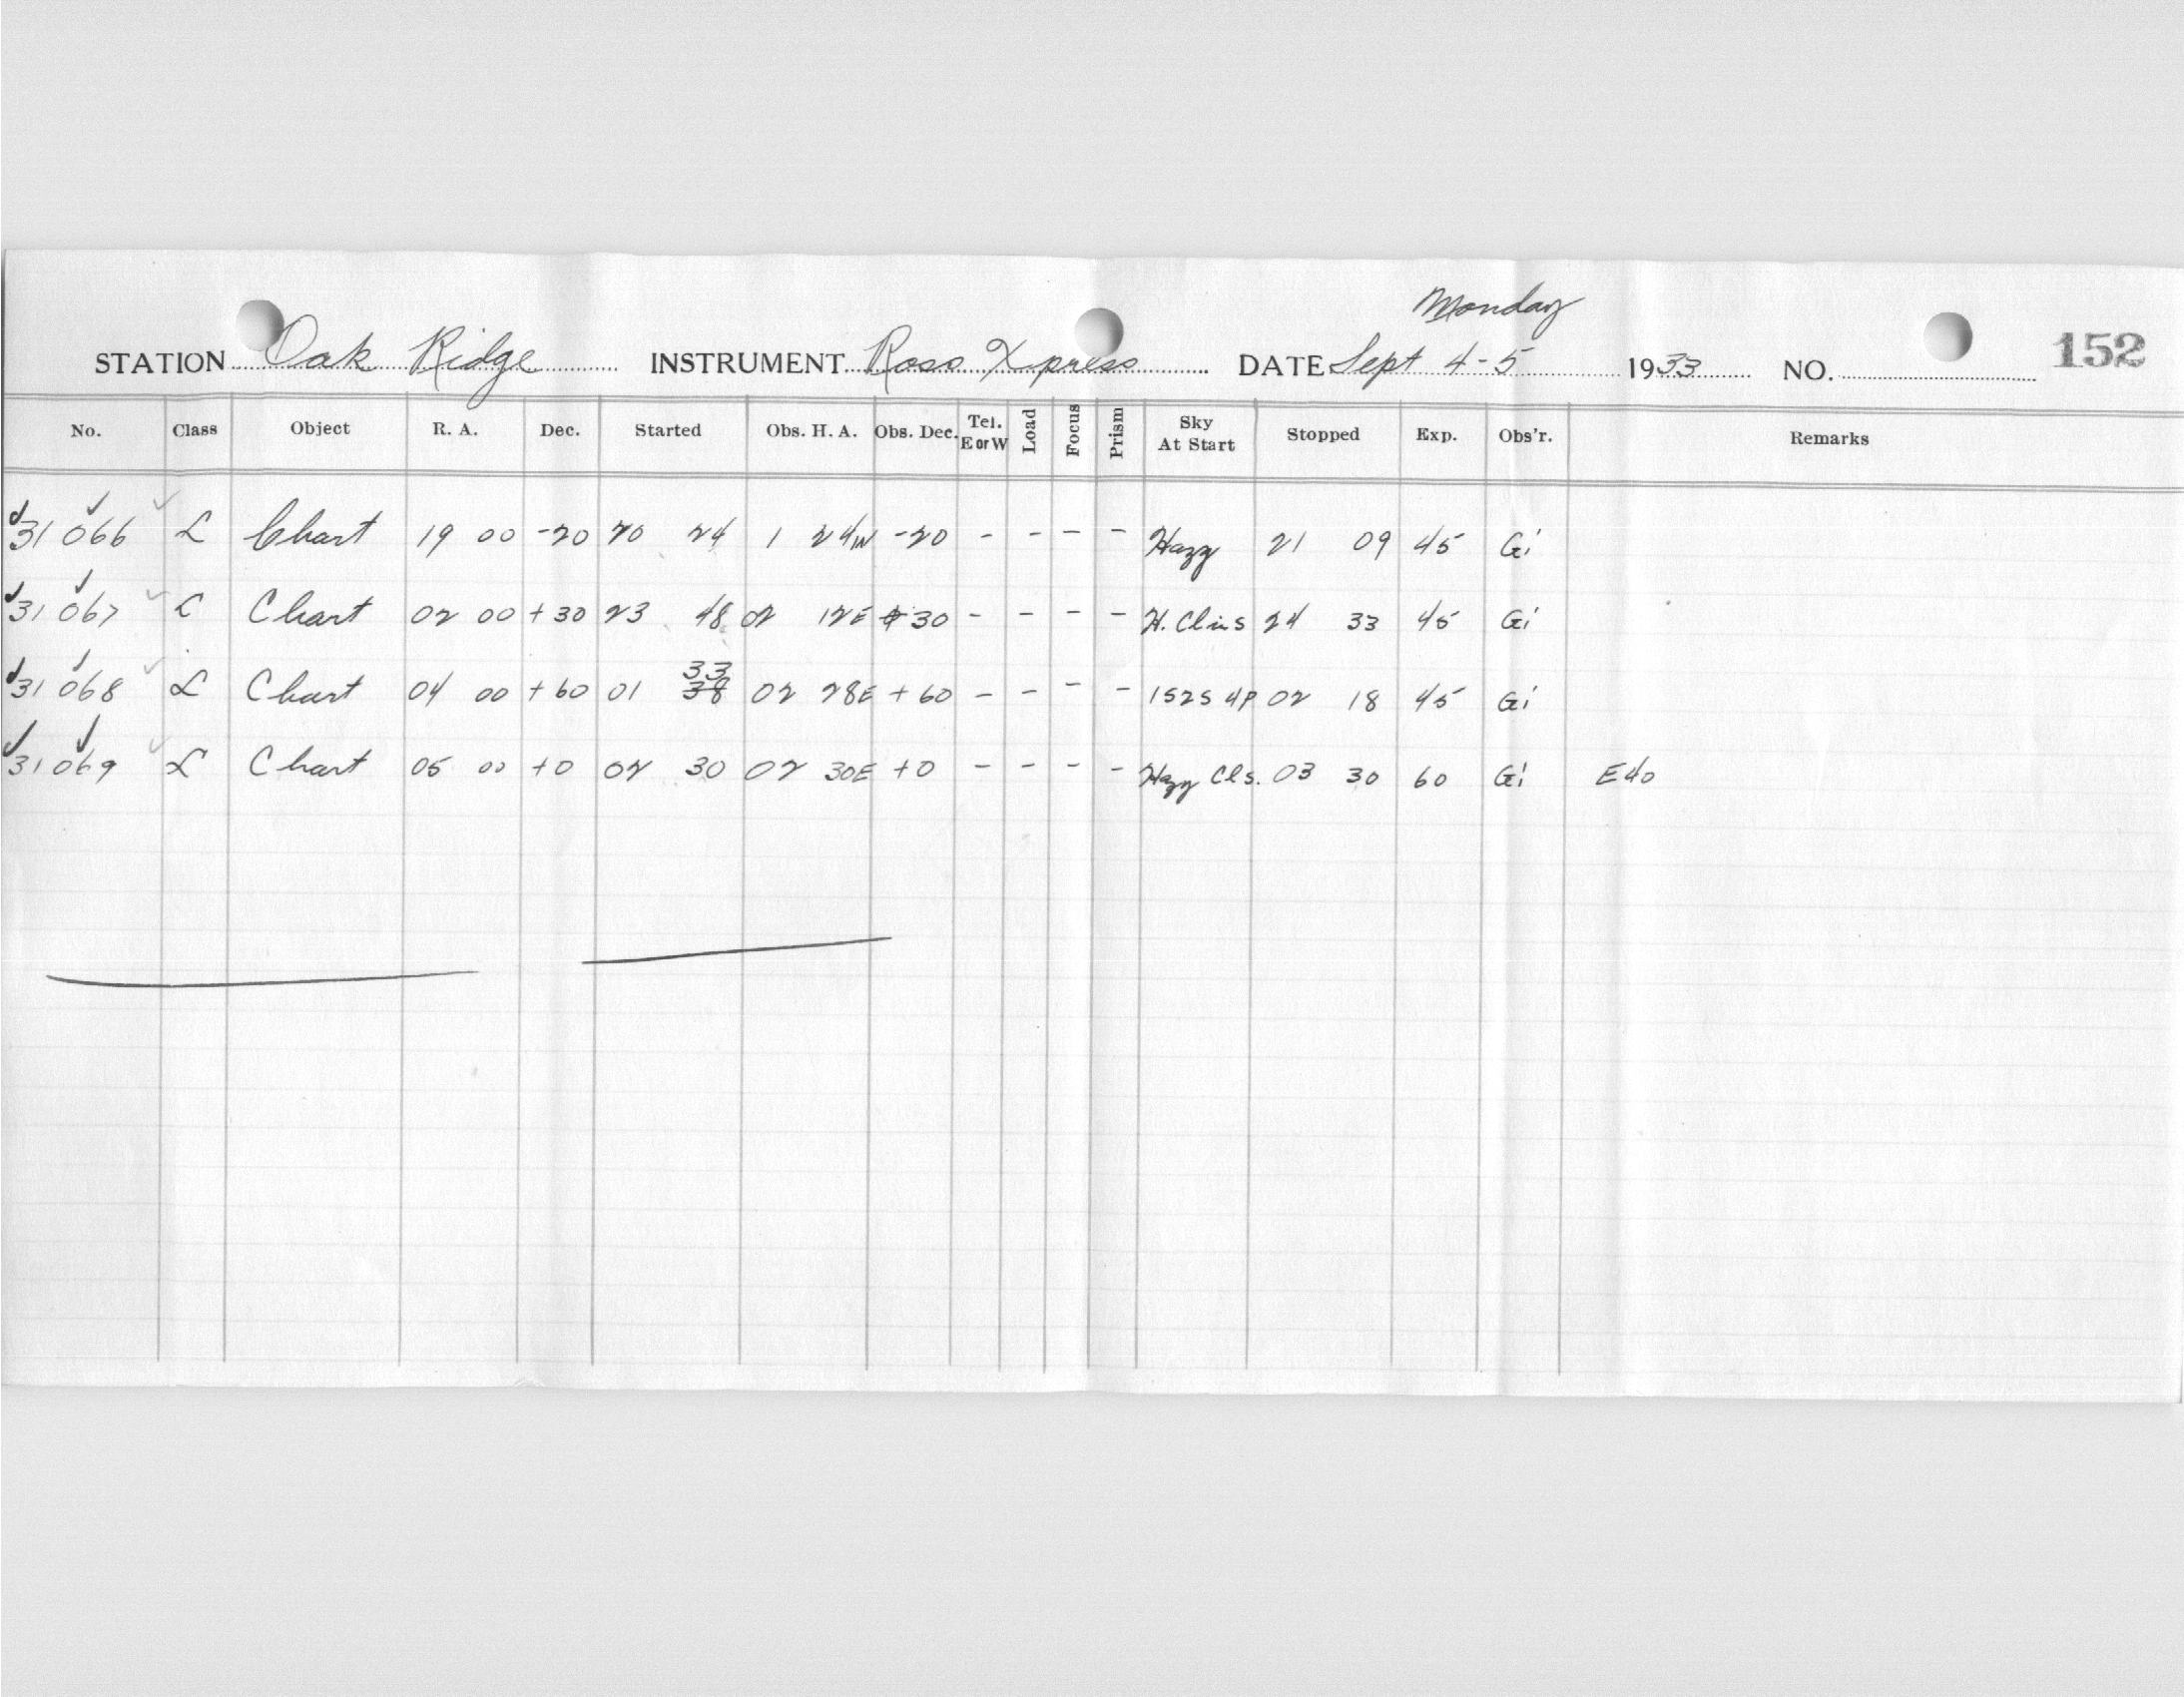 Monday
STATION Oak Ridge INSTRUMENT Ross Xpress DATE Sept 4-5 1933 NO. 152
No. Class Object R. A. Dec. Started Obs. H. A. Obs. Dec. Tel. E or W Load Focus Prism Sky At Start Stopped Exp. Obs'r. Remarks
31 066 L Chart 19 00 -20 20 24 1 24W -20 - - - - Hazy 21 09 45 Gi
31 067 L Chart 02 00 +30 23 48 02 12E +30 - - - - H. 24 33 45 Gi
31 068 L Chart 04 00 +60 01 38 33 02 28E +60 - - - - 1S2S 4P 02 18 45 Gi
31 069 L Chart 05 00 +0 02 30 02 30E +0 - - - - Hazy Cls. 03 30 60 Gi E40